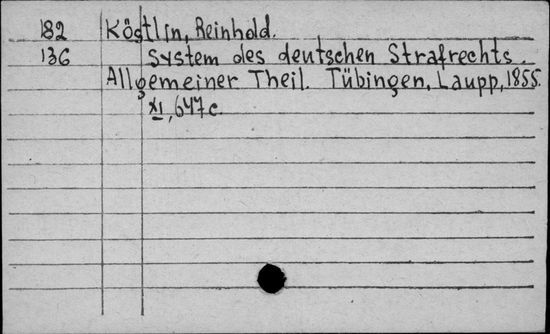 182 Ködtlin, Reinhold.
136 System des deutschen Strafrechts.
Allgemeiner Theil. Tübingen, Laupp, 1855.
XI, 647 c.